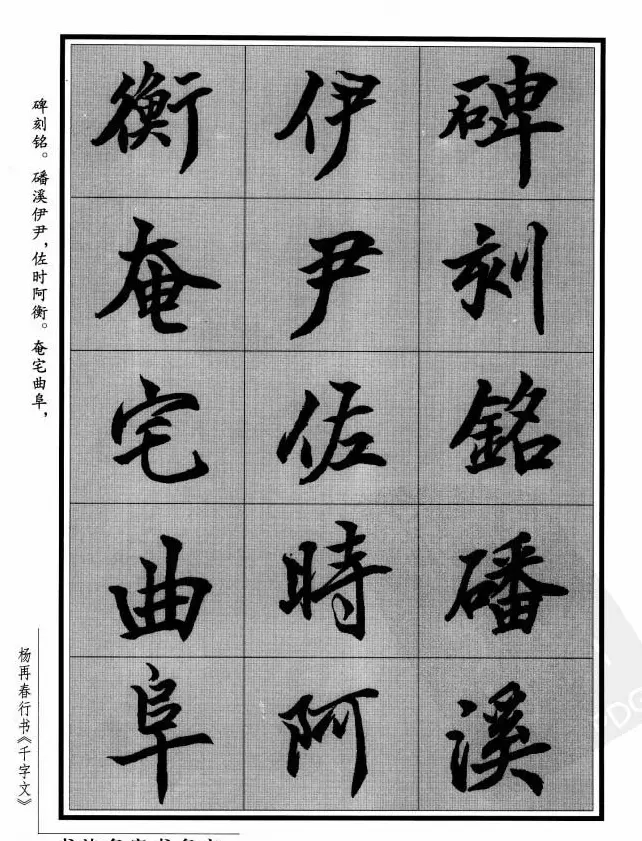 碑刻銘磻溪
伊尹佐時阿
衡奄宅曲阜
碑刻铭。磻溪伊尹，佐时阿衡。奄宅曲阜，
杨再春行书《千字文》